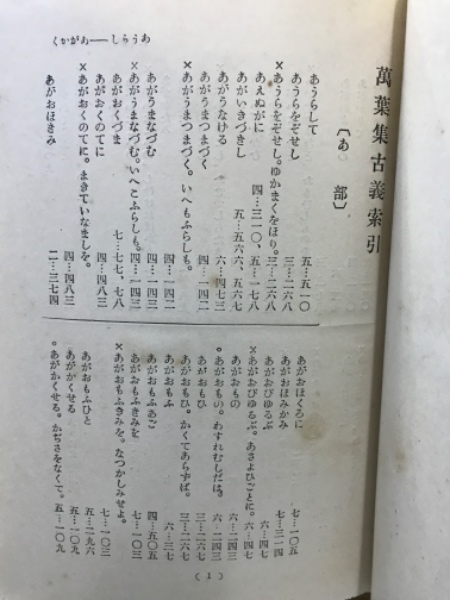 くかがあ――しらうあ
萬葉集古義索引
〔あ 部〕
あうらして 五…五一〇
あうらをぞせし 三…二六八
×あうらをぞせし。ゆかまくをほり。 三…二六八
あえぬがに 四…三一〇、五…一七八
あがいきづきし 五…五六六、五六七
あがうなける 六…四七三
あがうまつまづく 四…一四二
×あがうまつまづく。いへもふらしも。 四…一四二
あがうまなづむ 四…一四三
×あがうまなづむ。いへこふらしも。 四…一四三
あがおくづま 七…七七、七八
あがおくのてに 四…四八三
×あがおくのてに。まきていなましを。 四…四八三
あがおほきみ 二…三七四
あがおほくろに 七…一〇五
あがおほみかみ 七…三一四
あがおびゆるぶ 六…四七
×あがおびゆるぶ。あさよひごとに。 六…四七
あがおもの 六…二四三
×あがおもの。わすれむしだは。 六…二四三
あがおもひ 三…二六七
×あがおもひ。かくてあらずば。 三…二六七
あがおもふ 六…三七
あがおもふあご 四…五〇五
あがおもふきみを 七…一〇三
×あがおもふきみを。なつかしみせよ。 七…一〇三
あがおもふひと 五…二九六
あがかくせる 五…一〇九
×あがかくせる。かぢさをなくて。 五…一〇九
(1)